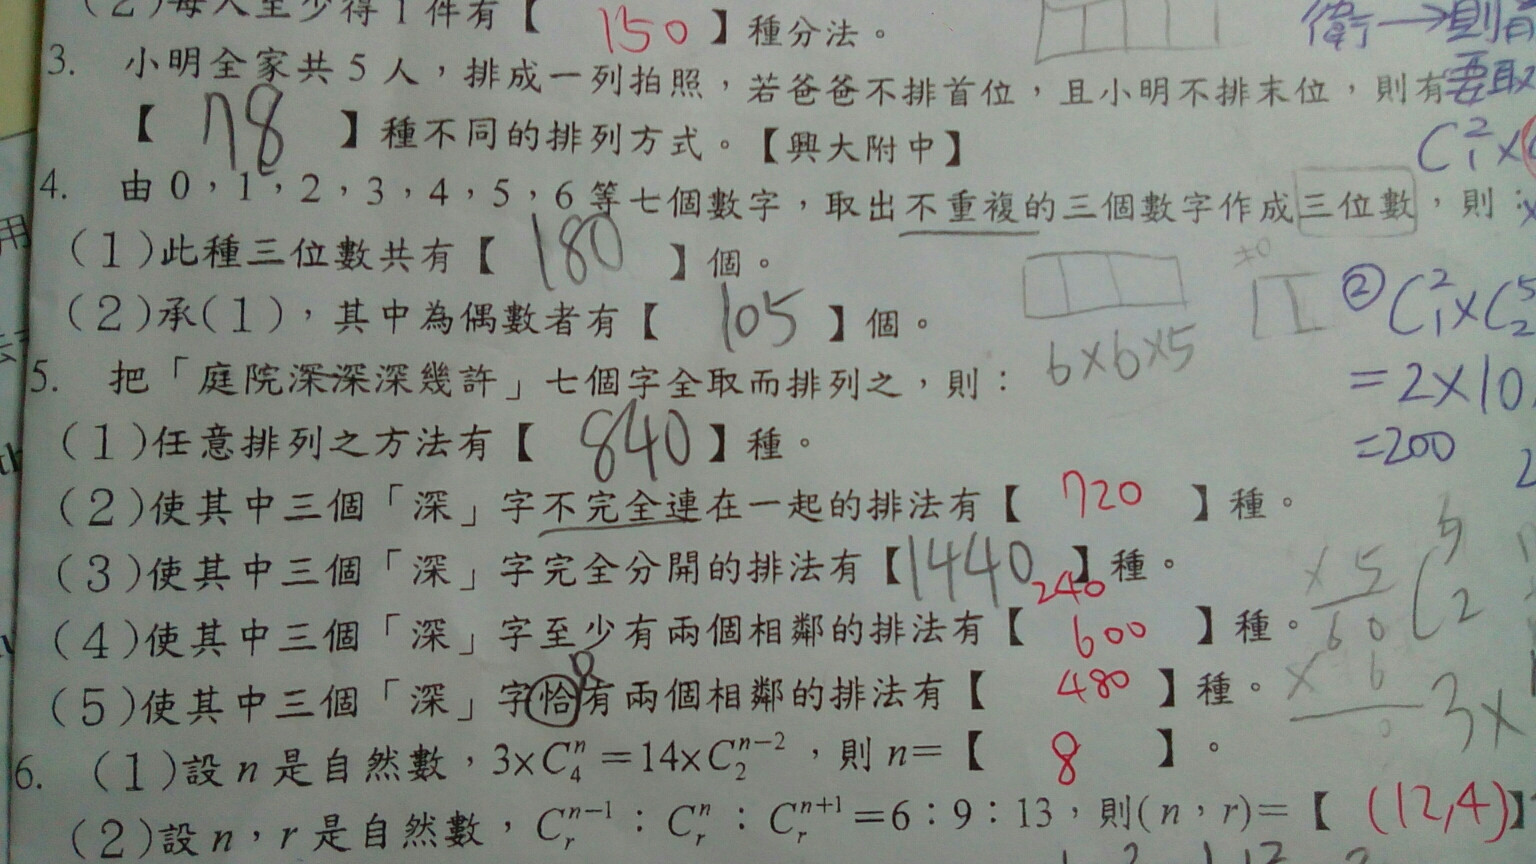 (2)每人至少得1件有【 150 】種分法。
3. 小明全家共5人，排成一列拍照，若爸爸不排首位，且小明不排末位，則有
【 78 】種不同的排列方式。【興大附中】
4. 由0，1，2，3，4，5，6等七個數字，取出不重複的三個數字作成三位數，則：
(1)此種三位數共有【 180 】個。
(2)承(1)，其中為偶數者有【 105 】個。
6×6×5
5. 把「庭院深深深幾許」七個字全取而排列之，則：
(1)任意排列之方法有【 840 】種。
(2)使其中三個「深」字不完全連在一起的排法有【 720 】種。
(3)使其中三個「深」字完全分開的排法有【 1440 】種。
240
(4)使其中三個「深」字至少有兩個相鄰的排法有【 600 】種。
(5)使其中三個「深」字恰有兩個相鄰的排法有【 480 】種。
6. (1)設n是自然數，3×C₄ⁿ=14×C₂ⁿ⁻²，則n=【 8 】。
(2)設n，r是自然數，Cᵣⁿ⁻¹：Cᵣⁿ：Cᵣⁿ⁺¹=6：9：13，則(n，r)=【 (12,4) 】
要取
≠0
=2×10
=200
× 5
60
× 6
3×